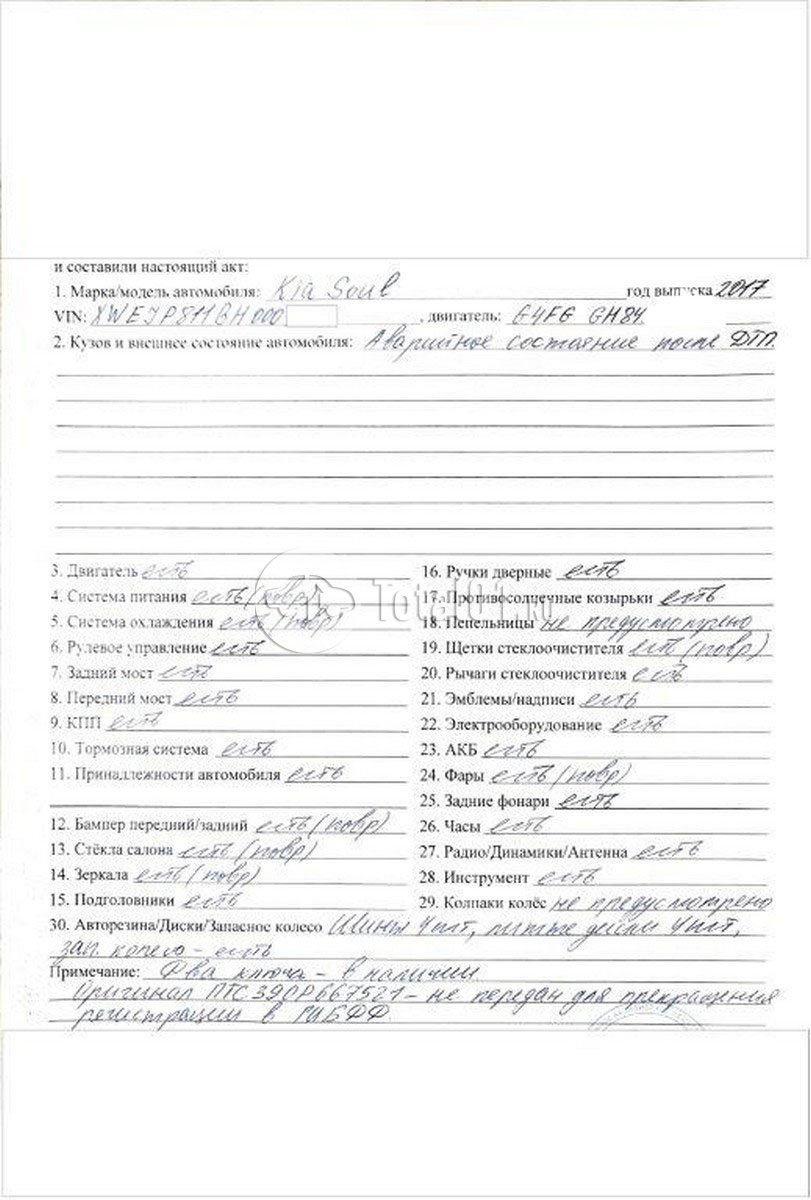 и составили настоящий акт:
1. Марка/модель автомобиля: Kia Soul год выпуска 2017
VIN: XWEJP811BH000 , двигатель: G4FG GH84
2. Кузов и внешнее состояние автомобиля: Аварийное состояние после ДТП.
3. Двигатель есть
4. Система питания есть (повр)
5. Система охлаждения есть (повр)
6. Рулевое управление есть
7. Задний мост есть
8. Передний мост есть
9. КПП есть
10. Тормозная система есть
11. Принадлежности автомобиля есть
12. Бампер передний/задний есть (повр)
13. Стёкла салона есть (повр)
14. Зеркала есть (повр)
15. Подголовники есть
16. Ручки дверные есть
17. Противосолнечные козырьки есть
18. Пепельницы не предусмотрено
19. Щетки стеклоочистителя есть (повр)
20. Рычаги стеклоочистителя есть
21. Эмблемы/надписи есть
22. Электрооборудование есть
23. АКБ есть
24. Фары есть (повр)
25. Задние фонари есть
26. Часы есть
27. Радио/Динамики/Антенна есть
28. Инструмент есть
29. Колпаки колёс не предусмотрено
30. Авторезина/Диски/Запасное колесо Шины 4шт, литые диски 4шт,
зап. колесо - есть
Примечание: Два ключа - в наличии.
Оригинал ПТС 39ОР667521 - не передан для прекращения
регистрации в ГИБДД.
Total01.ru